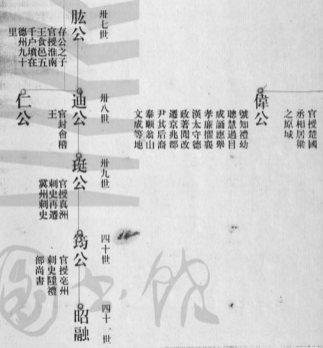 卅七世
肱公
存公之子
官授淮南
王食邑五
千户墳在
德州九十
里
卅八世
迪公
官封會稽
王
仁公
卅九世
珽公
官授真洲
刺史再遷
冀州刺史
四十世
筠公
官授亳州
刺史陞禮
部尚書
四十一世
昭融
偉公
官授楚國
丞相居梁
之原城
號知禮幼
聰慧過目
成誦應舉
孝廉擢襄
漢太守德
政著聞改
遷京兆郡
尹其后裔
秦順翁山
文成等地